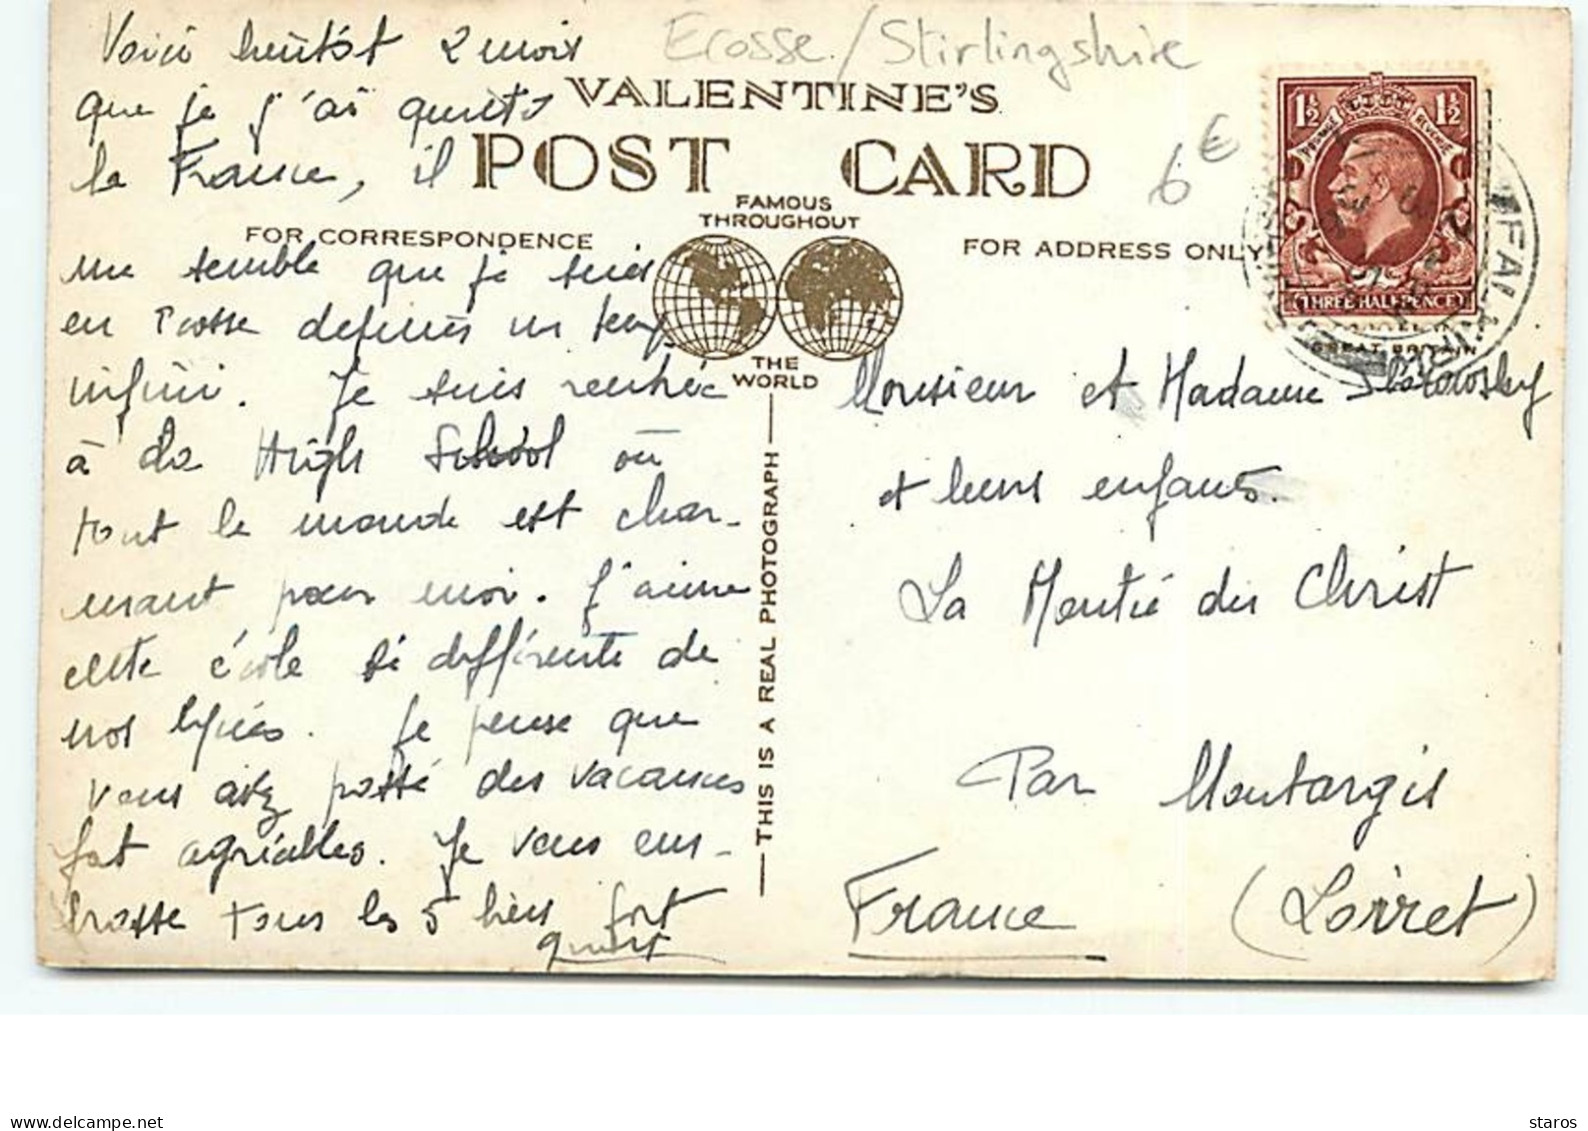 Voici bientôt 2 mois
que je j'ai quitté
la France, il
me semble que je suis
en Ecosse depuis un temps
infini. Je suis rentrée
à la High School où
tout le monde est char-
mant pour moi. J'aime
cette école si différente de
nos lycées. Je pense que
vous avez passé des vacances
fort agréables. Je vous em-
brasse tous les 5 bien fort
Ecosse / Stirlingshire
VALENTINE'S
POST CARD
6€
FAMOUS
THROUGHOUT
THE
WORLD
FOR CORRESPONDENCE
FOR ADDRESS ONLY
THIS IS A REAL PHOTOGRAPH
1½ 1½
POSTAGE REVENUE
THREE HALFPENCE
GREAT BRITAIN
FALKIRK
Monsieur et Madame
et leurs enfants.
La Montié du Christ
Par Montargis
France (Loiret)
delcampe.net
staros